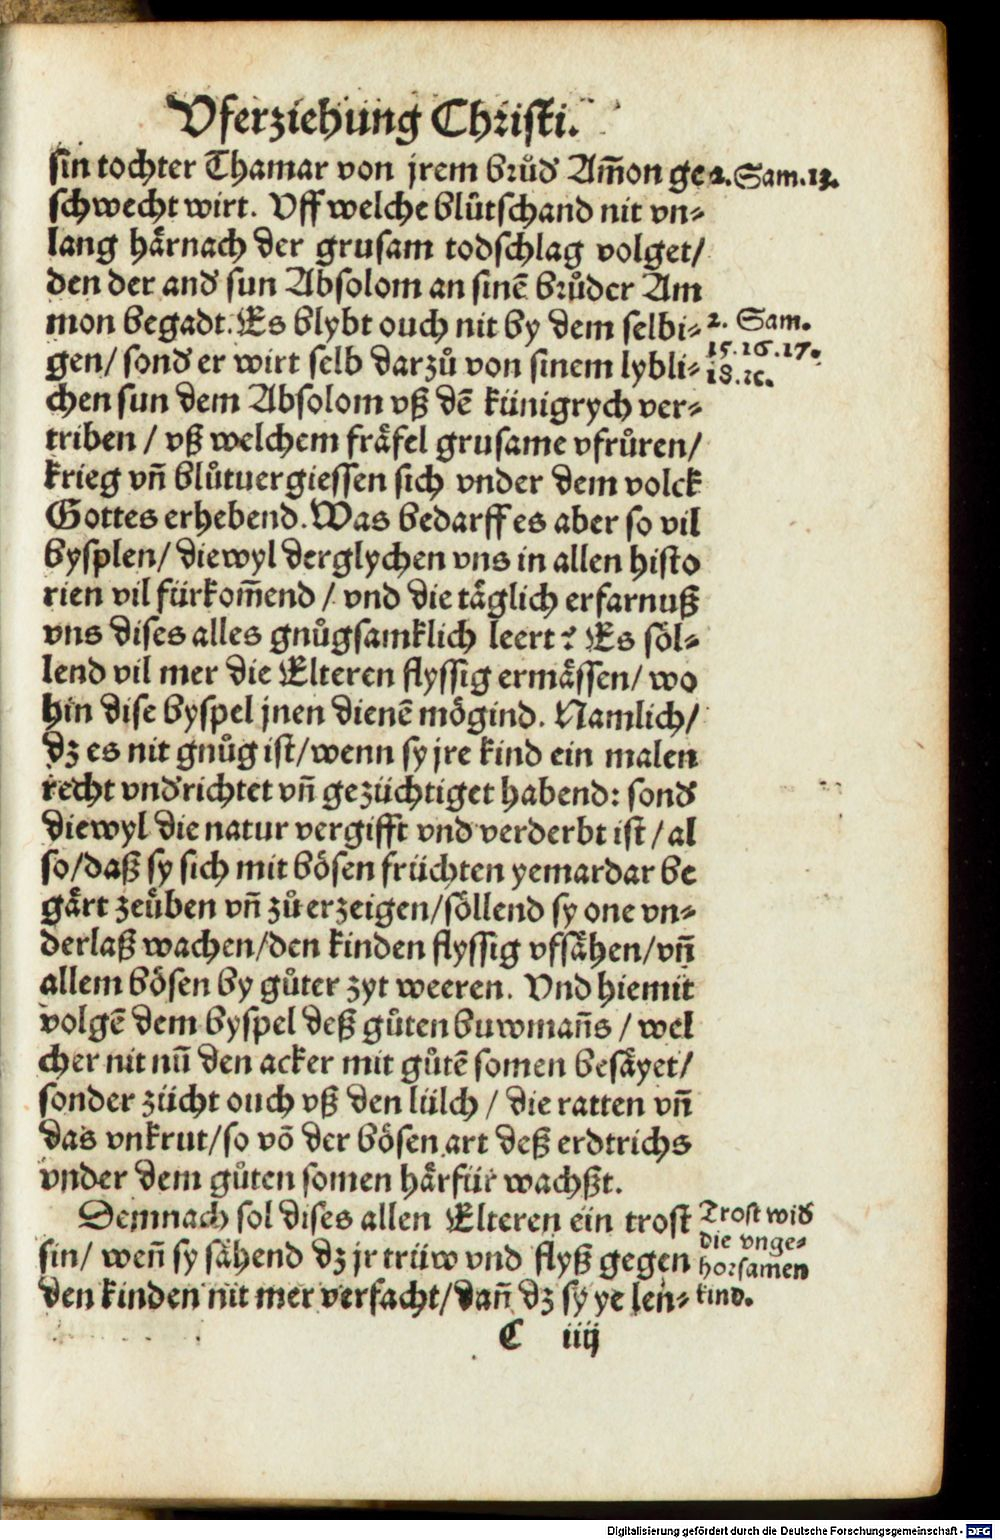 Vferziehung Christi.
sin tochter Thamar von jrem bruͦd' Am̄on ge
schwecht wirt. Vff welche bluͦtschand nit vn⸗
lang haͤrnach der grusam todschlag volget/
den der and' sun Absolom an sinē bruͦder Am
mon begadt. Es blybt ouch nit by dem selbi⸗
gen/ sond' er wirt selb darzuͦ von sinem lybli⸗
chen sun dem Absolom vß dē künigrych ver⸗
triben / vß welchem fraͤfel grusame vfruͦren/
krieg vn̄ bluͦtuergiessen sich vnder dem volck
Gottes erhebend. Was bedarff es aber so vil
bysplen/ diewyl derglychen vns in allen histo
rien vil fürkom̄end / vnd die taͤglich erfarnuß
vns dises alles gnuͦgsamklich leert? Es soͤl⸗
lend vil mer die Elteren flyssig ermaͤssen/ wo
hin dise byspel jnen dienē moͤgind. Namlich/
dz es nit gnuͦg ist/ wenn sy jre kind ein malen
recht vnd'richtet vn̄ gezüchtiget habend: sond'
diewyl die natur vergifft vnd verderbt ist / al
so/ daß sy sich mit boͤsen früchten yemardar be
gaͤrt zeuͤben vn̄ zuͦ erzeigen/ soͤllend sy one vn⸗
derlaß wachen/ den kinden flyssig vfsaͤhen/ vn̄
allem boͤsen by guͦter zyt weeren. Vnd hiemit
volgē dem byspel deß guͦten buwman̄s / wel
cher nit nū den acker mit guͦtē somen besaͤyet/
sonder zücht ouch vß den lülch / die ratten vn̄
das vnkrut/ so vō der boͤsen art deß erdtrichs
vnder dem guͦten somen haͤrfür wachßt.
Demnach sol dises allen Elteren ein trost
sin/ wen̄ sy saͤhend dz jr trüw vnd flyß gegen
den kinden nit mer verfacht/ dan̄ dz sy ye len⸗
2. Sam. 13.
2. Sam.
15. 16. 17.
18. ꝛc.
Trost wid'
die vnge⸗
horsamen
kind.
C iiij
Digitalisierung gefördert durch die Deutsche Forschungsgemeinschaft - DFG